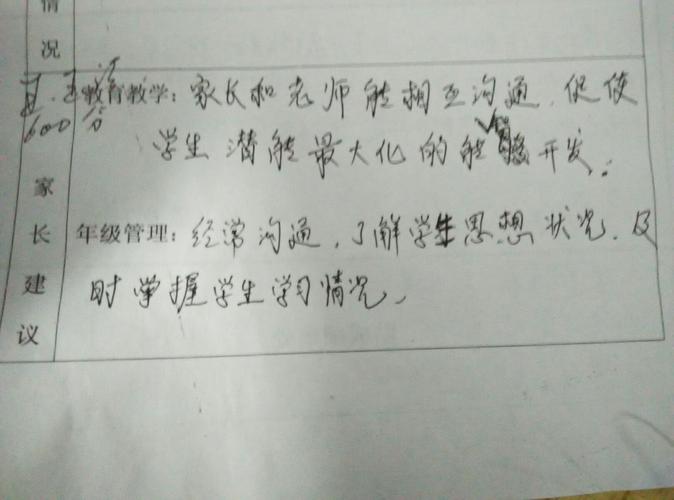 情
况
教育教学：家长和老师能相互沟通，促使
学生潜能最大化的能够开发。
年级管理：经常沟通，了解学生思想状况，及
时掌握学生学习情况。
600分
家
长
建
议